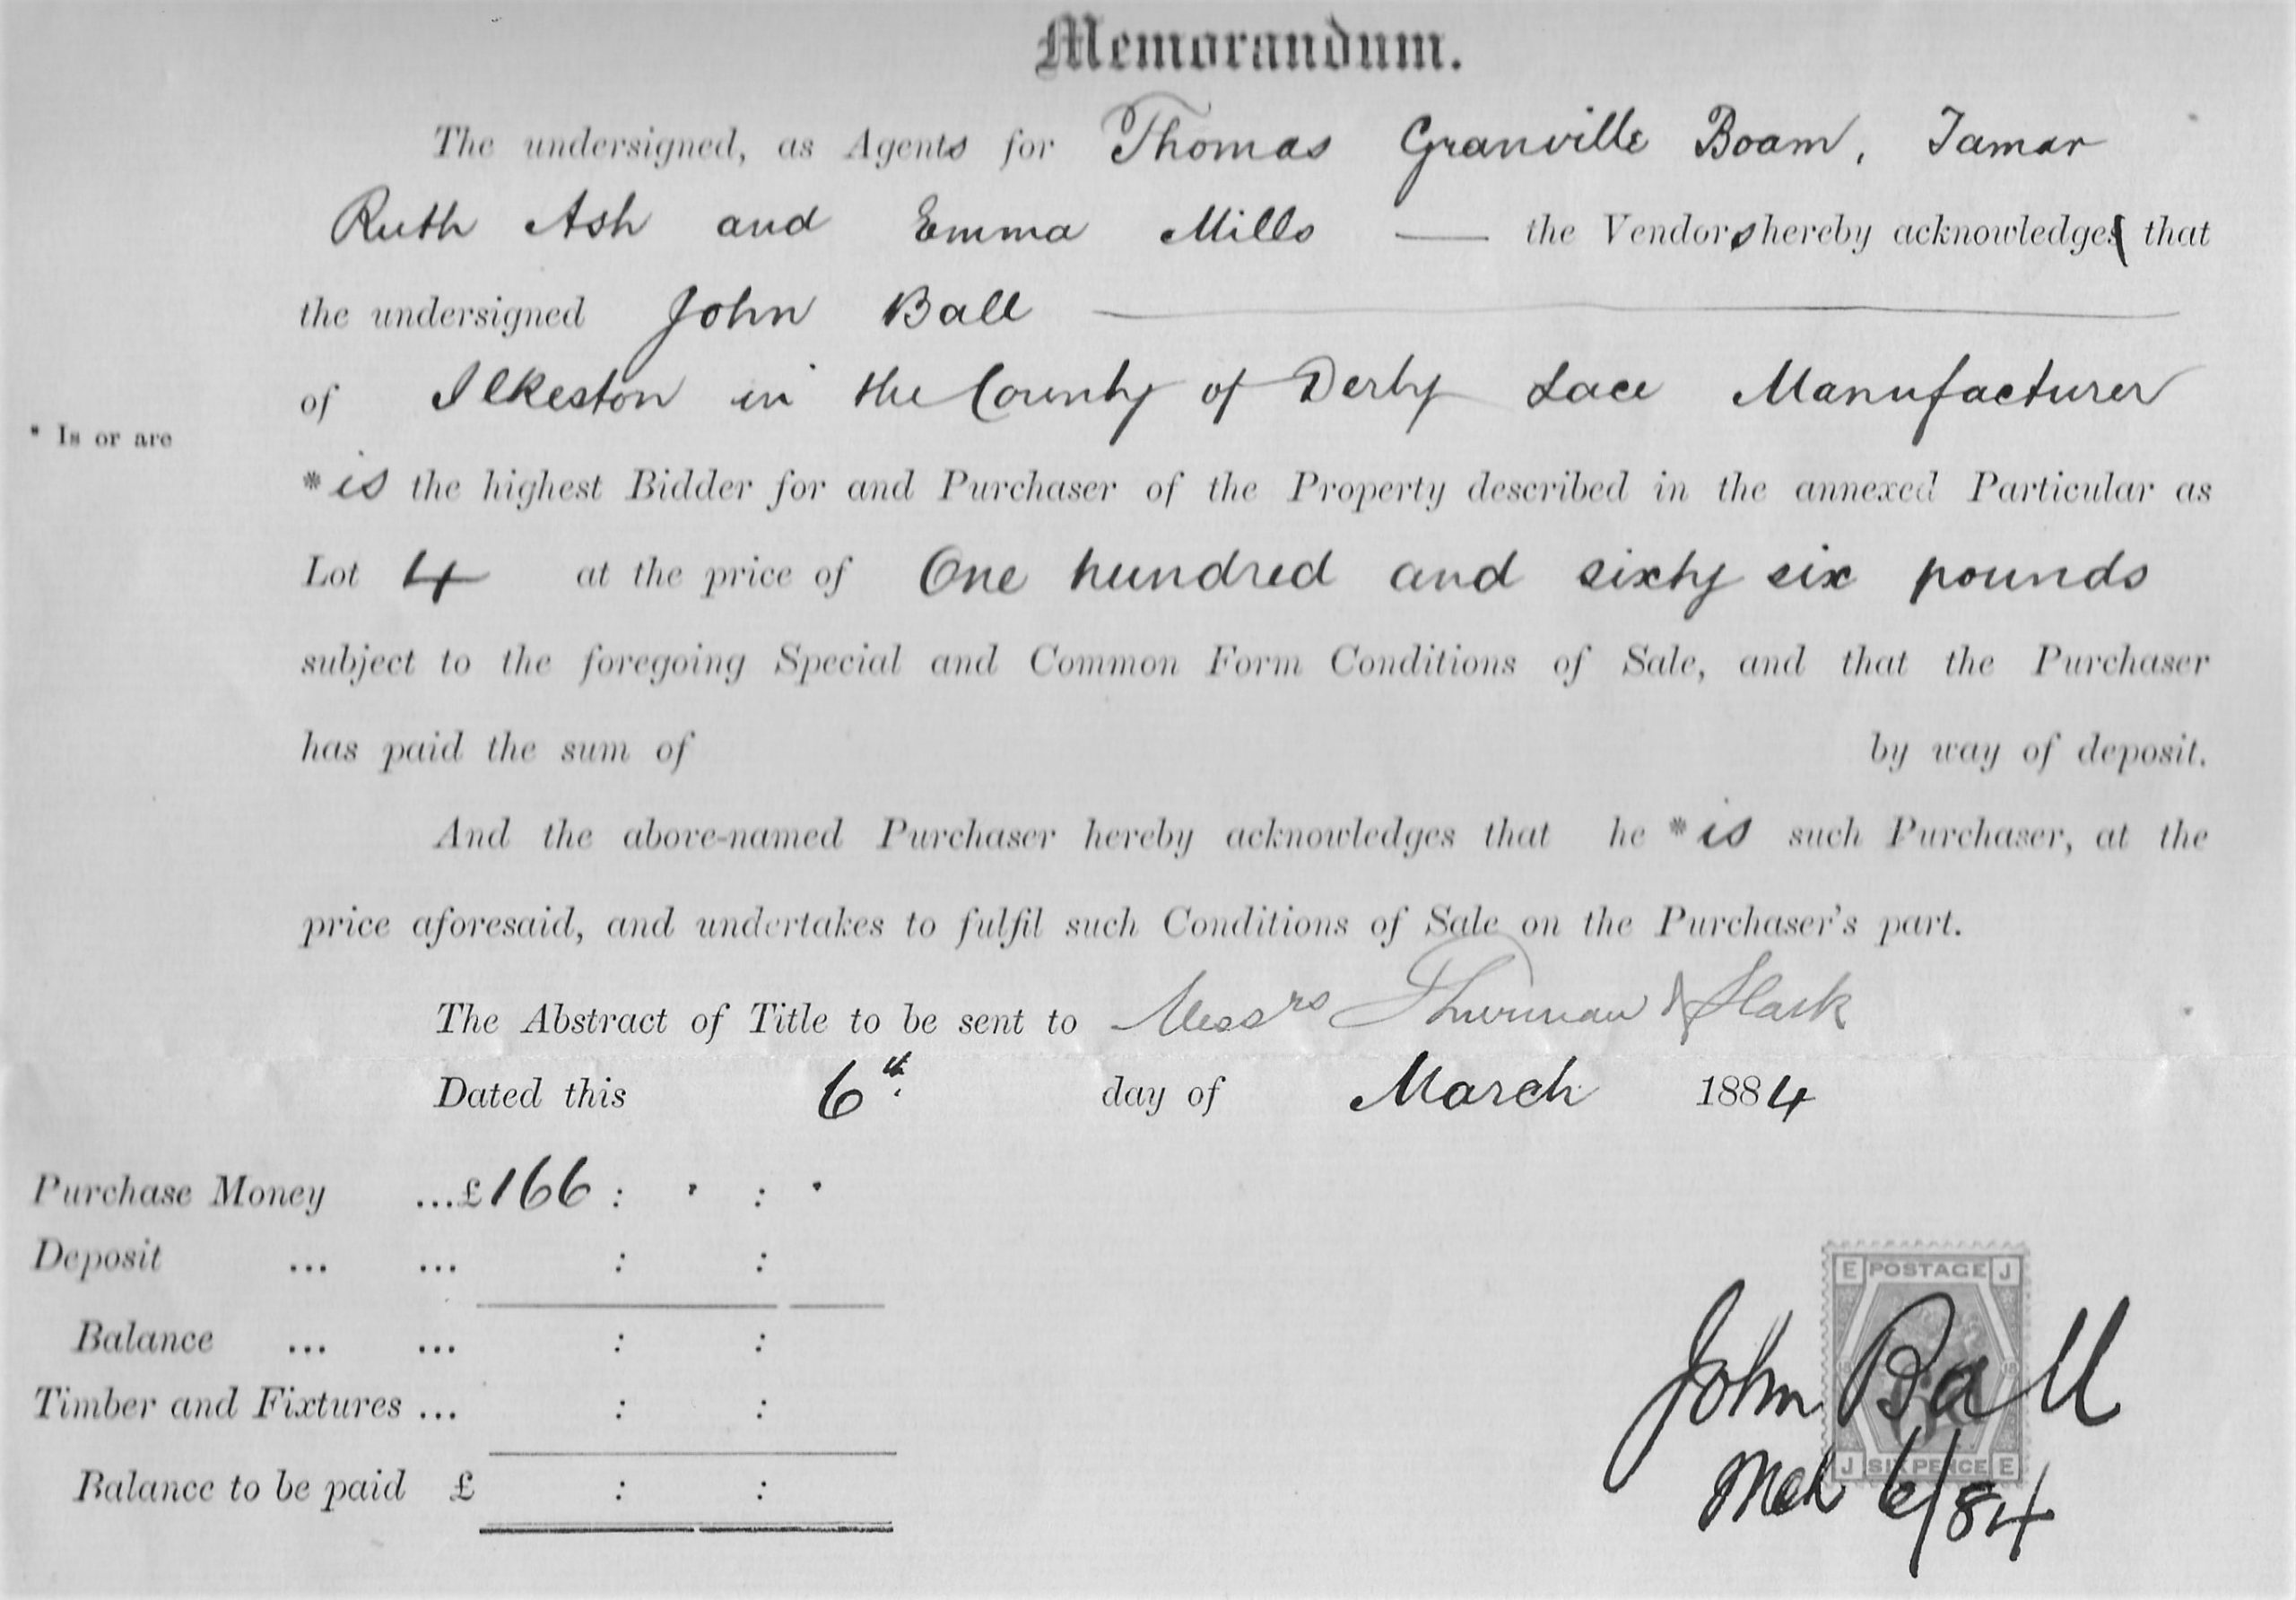 Memorandum.
The undersigned, as Agents for Thomas Granville Boam, Tamar
Ruth Ash and Emma Mills — the Vendors hereby acknowledge that
the undersigned John Ball
of Ilkeston in the County of Derby Lace Manufacturer
* Is or are
* is the highest Bidder for and Purchaser of the Property described in the annexed Particular as
Lot 4 at the price of One hundred and sixty six pounds
subject to the foregoing Special and Common Form Conditions of Sale, and that the Purchaser
has paid the sum of by way of deposit.
And the above-named Purchaser hereby acknowledges that he * is such Purchaser, at the
price aforesaid, and undertakes to fulfil such Conditions of Sale on the Purchaser's part.
The Abstract of Title to be sent to Messrs Thurman & Slack
Dated this 6th day of March 1884
Purchase Money ...£166 : . : .
Deposit ... ... : :
Balance ... ... : :
Timber and Fixtures ... : :
Balance to be paid £ : :
E POSTAGE J
John Ball
J SIX PENCE E
Mch 6/84